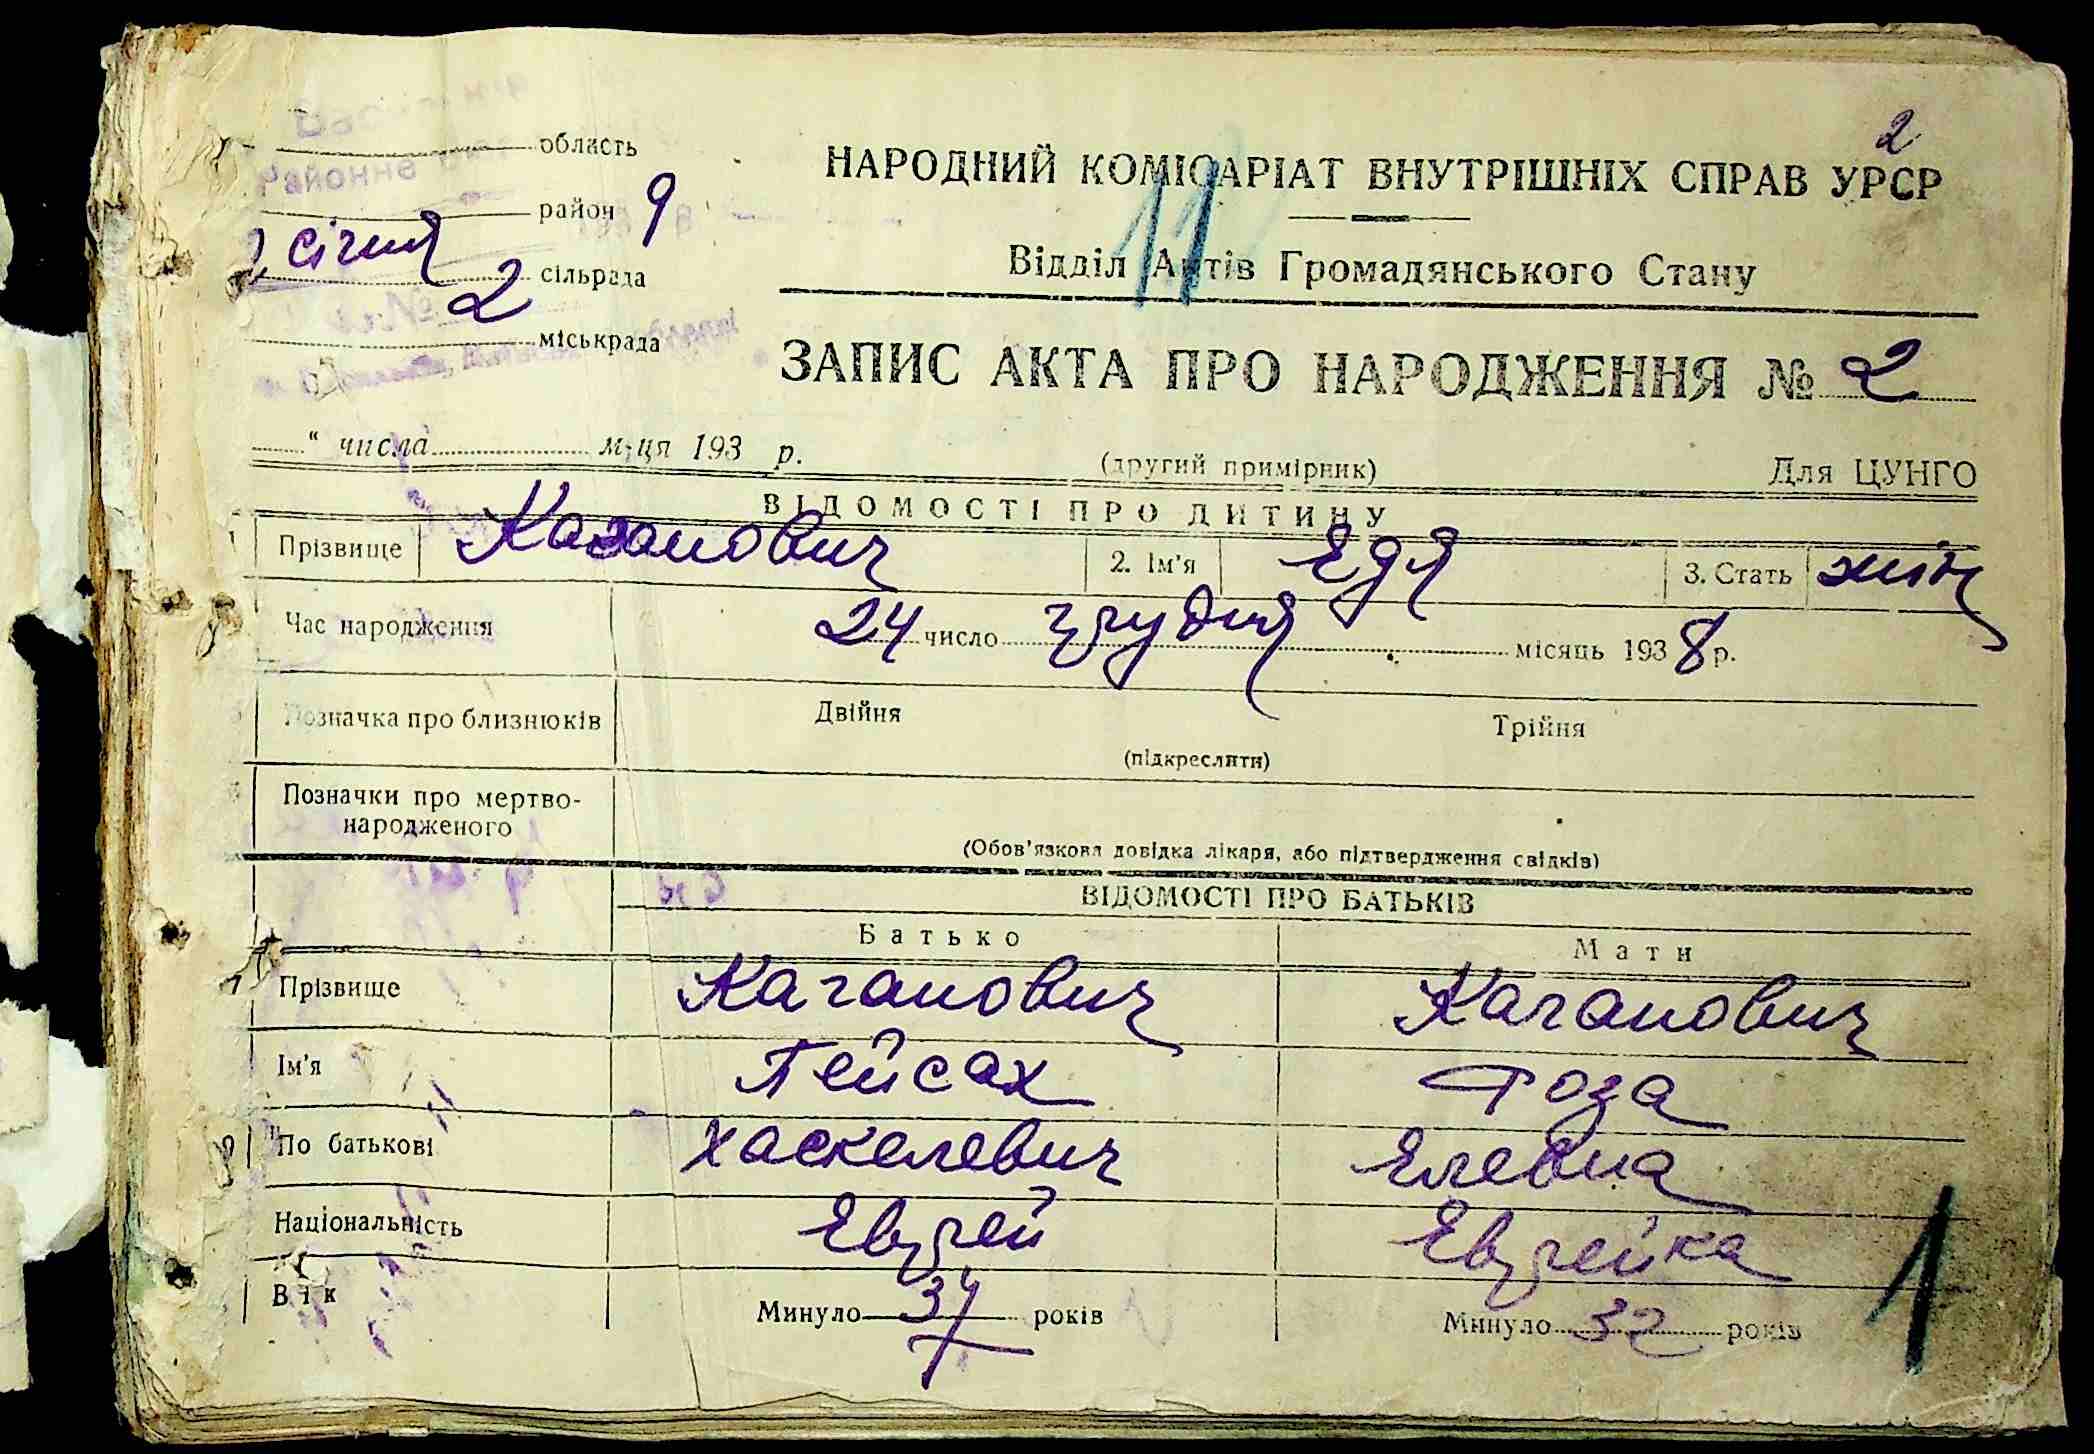 2
область
Районне
район 9
січня
2 сільрада
№
міськрада
НАРОДНИЙ КОМІСАРІАТ ВНУТРІШНІХ СПРАВ УРСР
11
Відділ Актів Громадянського Стану
ЗАПИС АКТА ПРО НАРОДЖЕННЯ № 2
“ числа м-ця 193 р.
(другий примірник) Для ЦУНГО
ВІДОМОСТІ ПРО ДИТИНУ
Прізвище Каганович 2. Ім'я Едя 3. Стать жін
Час народження 24 число грудня місяць 1938 р.
Позначка про близнюків Двійня Трійня
(підкреслити)
Позначки про мертво-
народженого
(Обов'язкова довідка лікаря, або підтвердження свідків)
ВІДОМОСТІ ПРО БАТЬКІВ
Батько Мати
Прізвище Каганович Каганович
Ім'я Пейсах Роза
По батькові Хаскелевич Елевна
Національність Еврей Еврейка
Вік Минуло 34 років Минуло 32 років
1